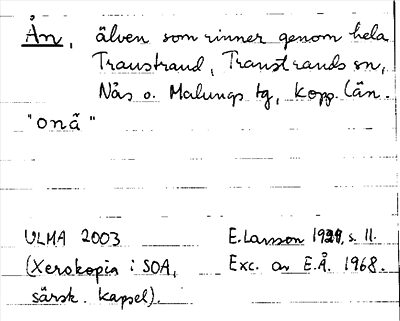 Ån, älven som rinner genom hela
Transtrand, Transtrands sn,
Nås o. Malungs tg, Kopp. län.
"onå̄"
ULMA 2003
(Xerokopia i SOA,
särsk. kapsel).
E. Larsson, s. 11.
Exc. av E.Å. 1968.